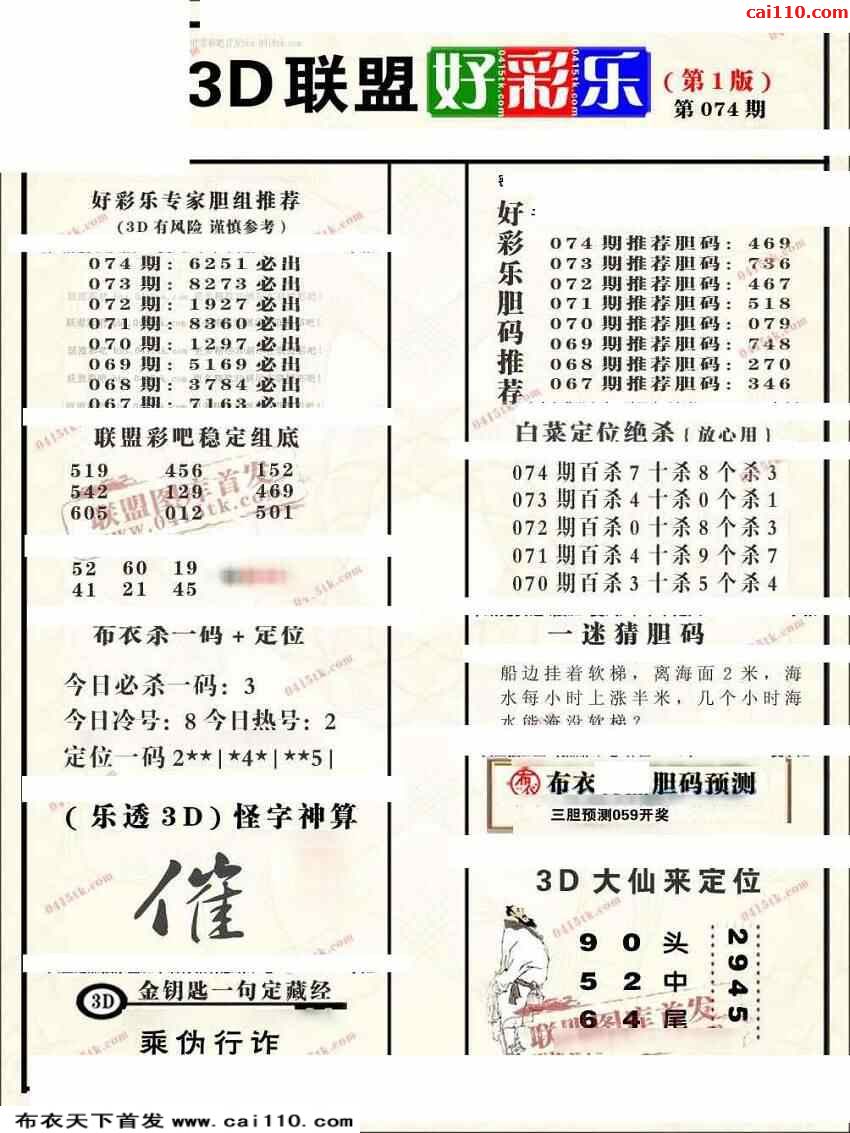 cai110.com
3D联盟好彩乐
(第1版)
第074期
好彩乐专家胆组推荐
(3D有风险 谨慎参考)
074期:6251必出
073期:8273必出
072期:1927必出
071期:8360必出
070期:1297必出
069期:5169必出
068期:3784必出
067期:7163必出
联盟彩吧稳定组底
519 456 152
542 129 469
605 012 501
52 60 19
41 21 45
布衣杀一码+定位
今日必杀一码:3
今日冷号:8 今日热号:2
定位一码2**|*4*|**5|
(乐透3D)怪字神算
催
3D 金钥匙一句定藏经
乘伪行诈
好彩乐胆码推荐
074期推荐胆码:469
073期推荐胆码:736
072期推荐胆码:467
071期推荐胆码:518
070期推荐胆码:079
069期推荐胆码:748
068期推荐胆码:270
067期推荐胆码:346
白菜定位绝杀(放心用)
074期百杀7十杀8个杀3
073期百杀4十杀0个杀1
072期百杀0十杀8个杀3
071期百杀4十杀9个杀7
070期百杀3十杀5个杀4
一迷猜胆码
船边挂着软梯,离海面2米,海
水每小时上涨半米,几个小时海
水能淹没软梯?
布衣 布衣 胆码预测
三胆预测059开奖
3D大仙来定位
9 0 头
5 2 中
6 4 尾
2945
联盟图库首发
www.0415tk.com
布衣天下首发 www.cai110.com